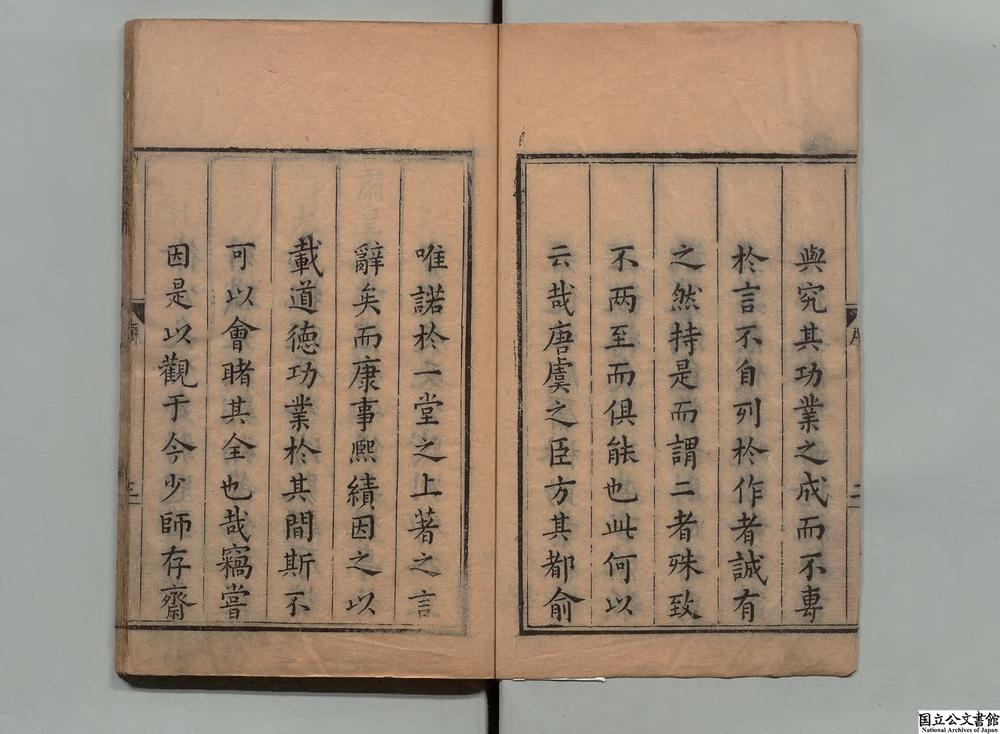 與究其功業之成而不專
於言不自列於作者誠有
之然持是而謂二者殊致
不两至而俱能也此何以
云哉唐虞之臣方其都俞
序
二
唯諾於一堂之上著之言
辭矣而康事熙績因之以
載道德功業於其間斯不
可以會睹其全也哉竊嘗
因是以觀于今少師存齋
序
三
国立公文書館
National Archives of Japan